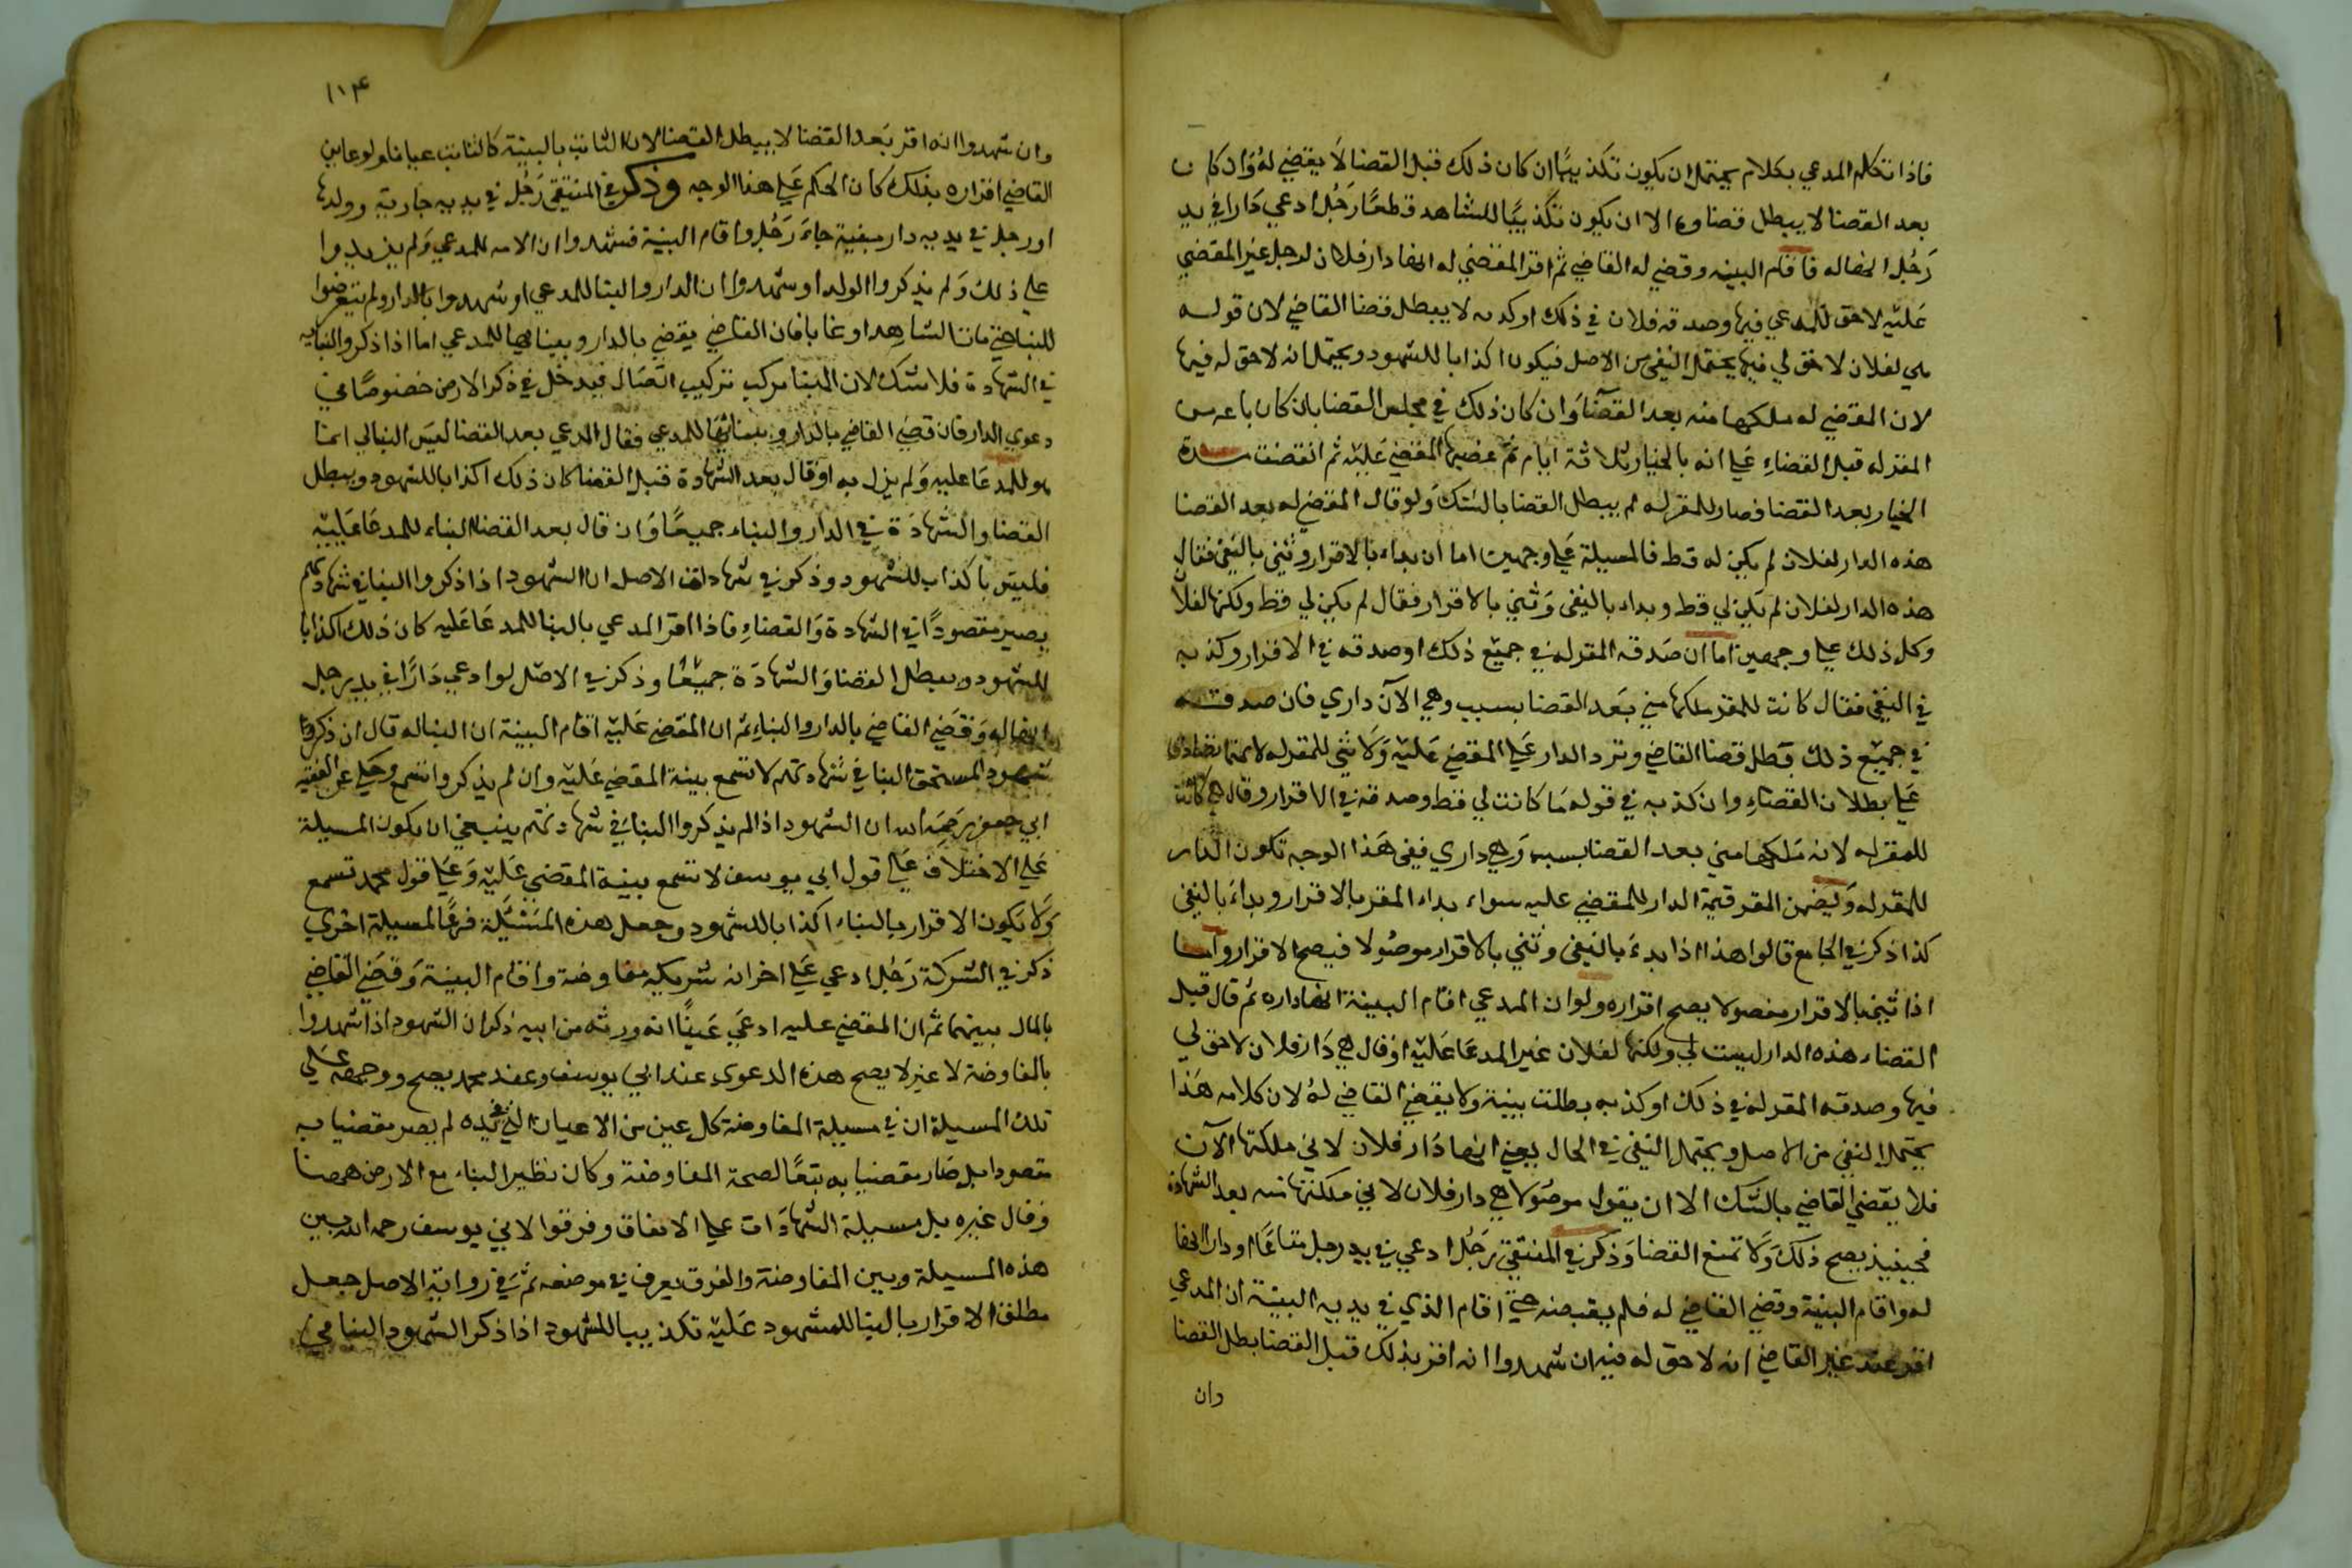 فاذا تكلم المدعي بكلام يحتمل ان يكون تكذيبًا ان كان ذلك قبل القضا لا يقضي له وان كان
بعد القضا لا يبطل قضاوه الا ان يكون تكذيبًا للشاهد قطعًا رَجُل ادعي دَارا في يد
رَجُل انها له فاقام البينه وقضي له القاضي ثم اقر المقضي له انها دار فلان لرجل غير المقضي
عَليْه لا حق للمدعي فيها وصدقه فلان في ذلك او كذبه لا يبطل قضا القاضي لان قوله
هي لفلان لا حق لي فيها يحتمل النفي من الاصل فيكون اكذابا للشهود ويحتمل انه لا حق له فيها
لان المقضي له ملكها منه بعد القضا وان كان ذلك في مجلس القضا بان كان باعه من
المقر له قبل القضاء علي انه بالخيار ثلاثة ايام ثم غصبها المقضي عَليْه ثم انقضت مدة
الخيار بعد القضا فصار للمقر له لم يبطل القضا بالشك ولو قال المقضي له بعد القضا
هذه الدار لفلان لم يكن له قط فالمسيلة علي وجهين اما ان بداء بالاقرار وثني بالنفي فقال
هذه الدار لفلان لم يكن لي قط وبداء بالنفي وثني بالاقرار فقال لم يكن لي قط ولكنها لفلان
وكل ذلك علي وجهين اما ان صَدقه المقر له في جميع ذلك او صدقه في الاقرار وكذبه
في النفي فقال كانت للمقر ملكها مني بَعد القضا بسبب وهي الآن داري فان صدقه
في جميع ذلك بَطل قضا القاضي وترد الدار علي المقضي عَليْه وَلا شي للمقر له لانهما تصادقا
عَلي بطلان القضاء وان كذبه في قوله مَا كانت لي قط وصدقه في الاقرار وقال هي كانت
للمقر له لانه مَلكها مني بعد القضا بسبب وَهي داري ففي هَذا الوجه تكون الدار
للمقر له وَيَضمن المقر قيمة الدار للمقضي عليه سواء بداء المقر بالاقرار وبداء بالنفي
كذا ذكر في الجامع قالوا هذا اذا بدءَ بالنفي وثني بالاقرار موصُولا فيصح الاقرار وَاَما
اذا ثني بالاقرار مفصولا يصح اقراره ولو ان المدعي اقام البينة انها داره ثم قال قبل
القضاء هذه الدار ليست لي ولكنها لفلان غير المدعَا عَليْه او قال هي دَار فلان لا حق لي
فيها وصدقه المقر له في ذلك او كذبه بطلت بينة ولا يقضي القاضي لهُ لان كلامه هَذا
يحتمل النفي من الاصل ويحتمل النفي في الحال يعني انها دَار فلان لاني ملكتها الآن
فلا يقضي القاضي بالشك الا ان يقول موصُولا هي دار فلان لاني ملكتها منه بعد الشهادة
فحينيذ يصح ذلك وَلا تمنع القضا وَذكر في المنتقي رَجُل ادعي في يد رجل متاعًا او دار انها
له واقام البينة وقضي القاضي له فلم يقبضه حتي اقام الذي في يديه البينة ان المدعي
اقر عند غير القاضي انه لا حق له فيه ان شهدوا انه اقر بذلك قبل القضا بطل القضا
وان
١١٤
وان شهدوا انه اقر بَعد القضا لا يبطل القضا لان الثابت بالبينة كالثابت عيانا ولو عاين
القاضي اقراره بذلك كان الحكم عَلي هذا الوجه وذكر في المنتقي رَجُل في يديه جارية وولدها
او رجل في يديه دار مبنية جاءَ رَجُل واقام البينة فشهدوا ان الامه للمدعي وَلم يزيدوا
علي ذلك وَلم يذكروا الولد او شهدوا ان الدار والبنا للمدعي او شهدوا بالدار ولم يتعرضوا
للبنا حتي مات الشاهد او غابا فان القاضي يقضي بالدار وبنايها للمدعي اما اذا ذكروا البنا
في الشهادة فلا شك لان البنا مركب تركيب اتصَال فيدخل في ذكر الارض خصُوصًا في
دعوي الدار فان قضي القاضي بالدار وببنائها للمدعي فقال المدعي بعد القضا ليسَ البنا لي انما
هو للمدعَا عليه وَلم يزل به او قال بعد الشهادة قبل القضا كان ذلك اكذابا للشهود ويبطل
القضا والشهادَة في الدار والبناء جميعًا وَان قال بعد القضا البناء للمدعَا عَليْه
فليسَ باكذاب للشهود وذكر في شهادات الاصل ان الشهود اذا ذكروا البنا في شهادتهم
يصير مقصودًا في الشهادة وَالقضاءِ فاذا اقر المدعي بالبنا للمدعَا عَليه كان ذلك اكذابا
للشهود ويبطل القضا وَالشهادَة جميْعًا وذكر في الاصل لو ادعي دَارًا في يد رجل
انها له وَقضي القاضي بالدار والبناءِ ثم ان المقضي عَليْه اقام البينة ان البنا له قال ان ذكروا
شهود المستحق البنا في شهادتهم لا تسمع بينة المقضي عَليْه وان لم يذكروا تسمع وحكي عن الفقيه
ابي جعفر رَحمَه الله ان الشهود اذا لم يذكروا البنا في شهادتهم ينبغي ان يكون المسيلة
عَلي الاختلاف عَلي قول ابي يوسف لا تسمع بينة المقضي عَليْه وَعَلي قول محمد تسمع
وَلا يكون الاقرار بالبناء اكذابا للشهود وجعل هذه المَسْئَلة فرعًا لمسيلة اخري
ذكر في الشركة رَجُل ادعي عَلي اخر انه شريكه مفاوضة واقام البينة وَقضَي القاضي
بالمال بينهما ثم ان المقضي عليه ادعي عَينًا انه ورثه من ابيه ذكر ان الشهود اذا شهدوا
بالمفاوضة لا غير لا يصح هذه الدعوي عند ابي يوسف وعند محمد يصح ووجهه عَلي
تلك المسيلة ان في مسيلة المفاوضة كل عين من الاعيان التي في يده لم يصر مقضيا به
مقصودا بل صَار مقضيا به تبعًا لصحة المفاوضة وكان نظير البناء مع الارض ههنا
وَقال غيره بل مسيلة الشهادَات علي الاتفاق وفرقوا لابي يوسف رحمه الله بين
هذه المسيلة وبين المفاوضة والفرق يعرف في موضعه ثم في رواية الاصل جعل
مطلق الاقرار بالبنا للمشهود عَليْه تكذيبا للشهود اذا ذكر الشهود البنا في